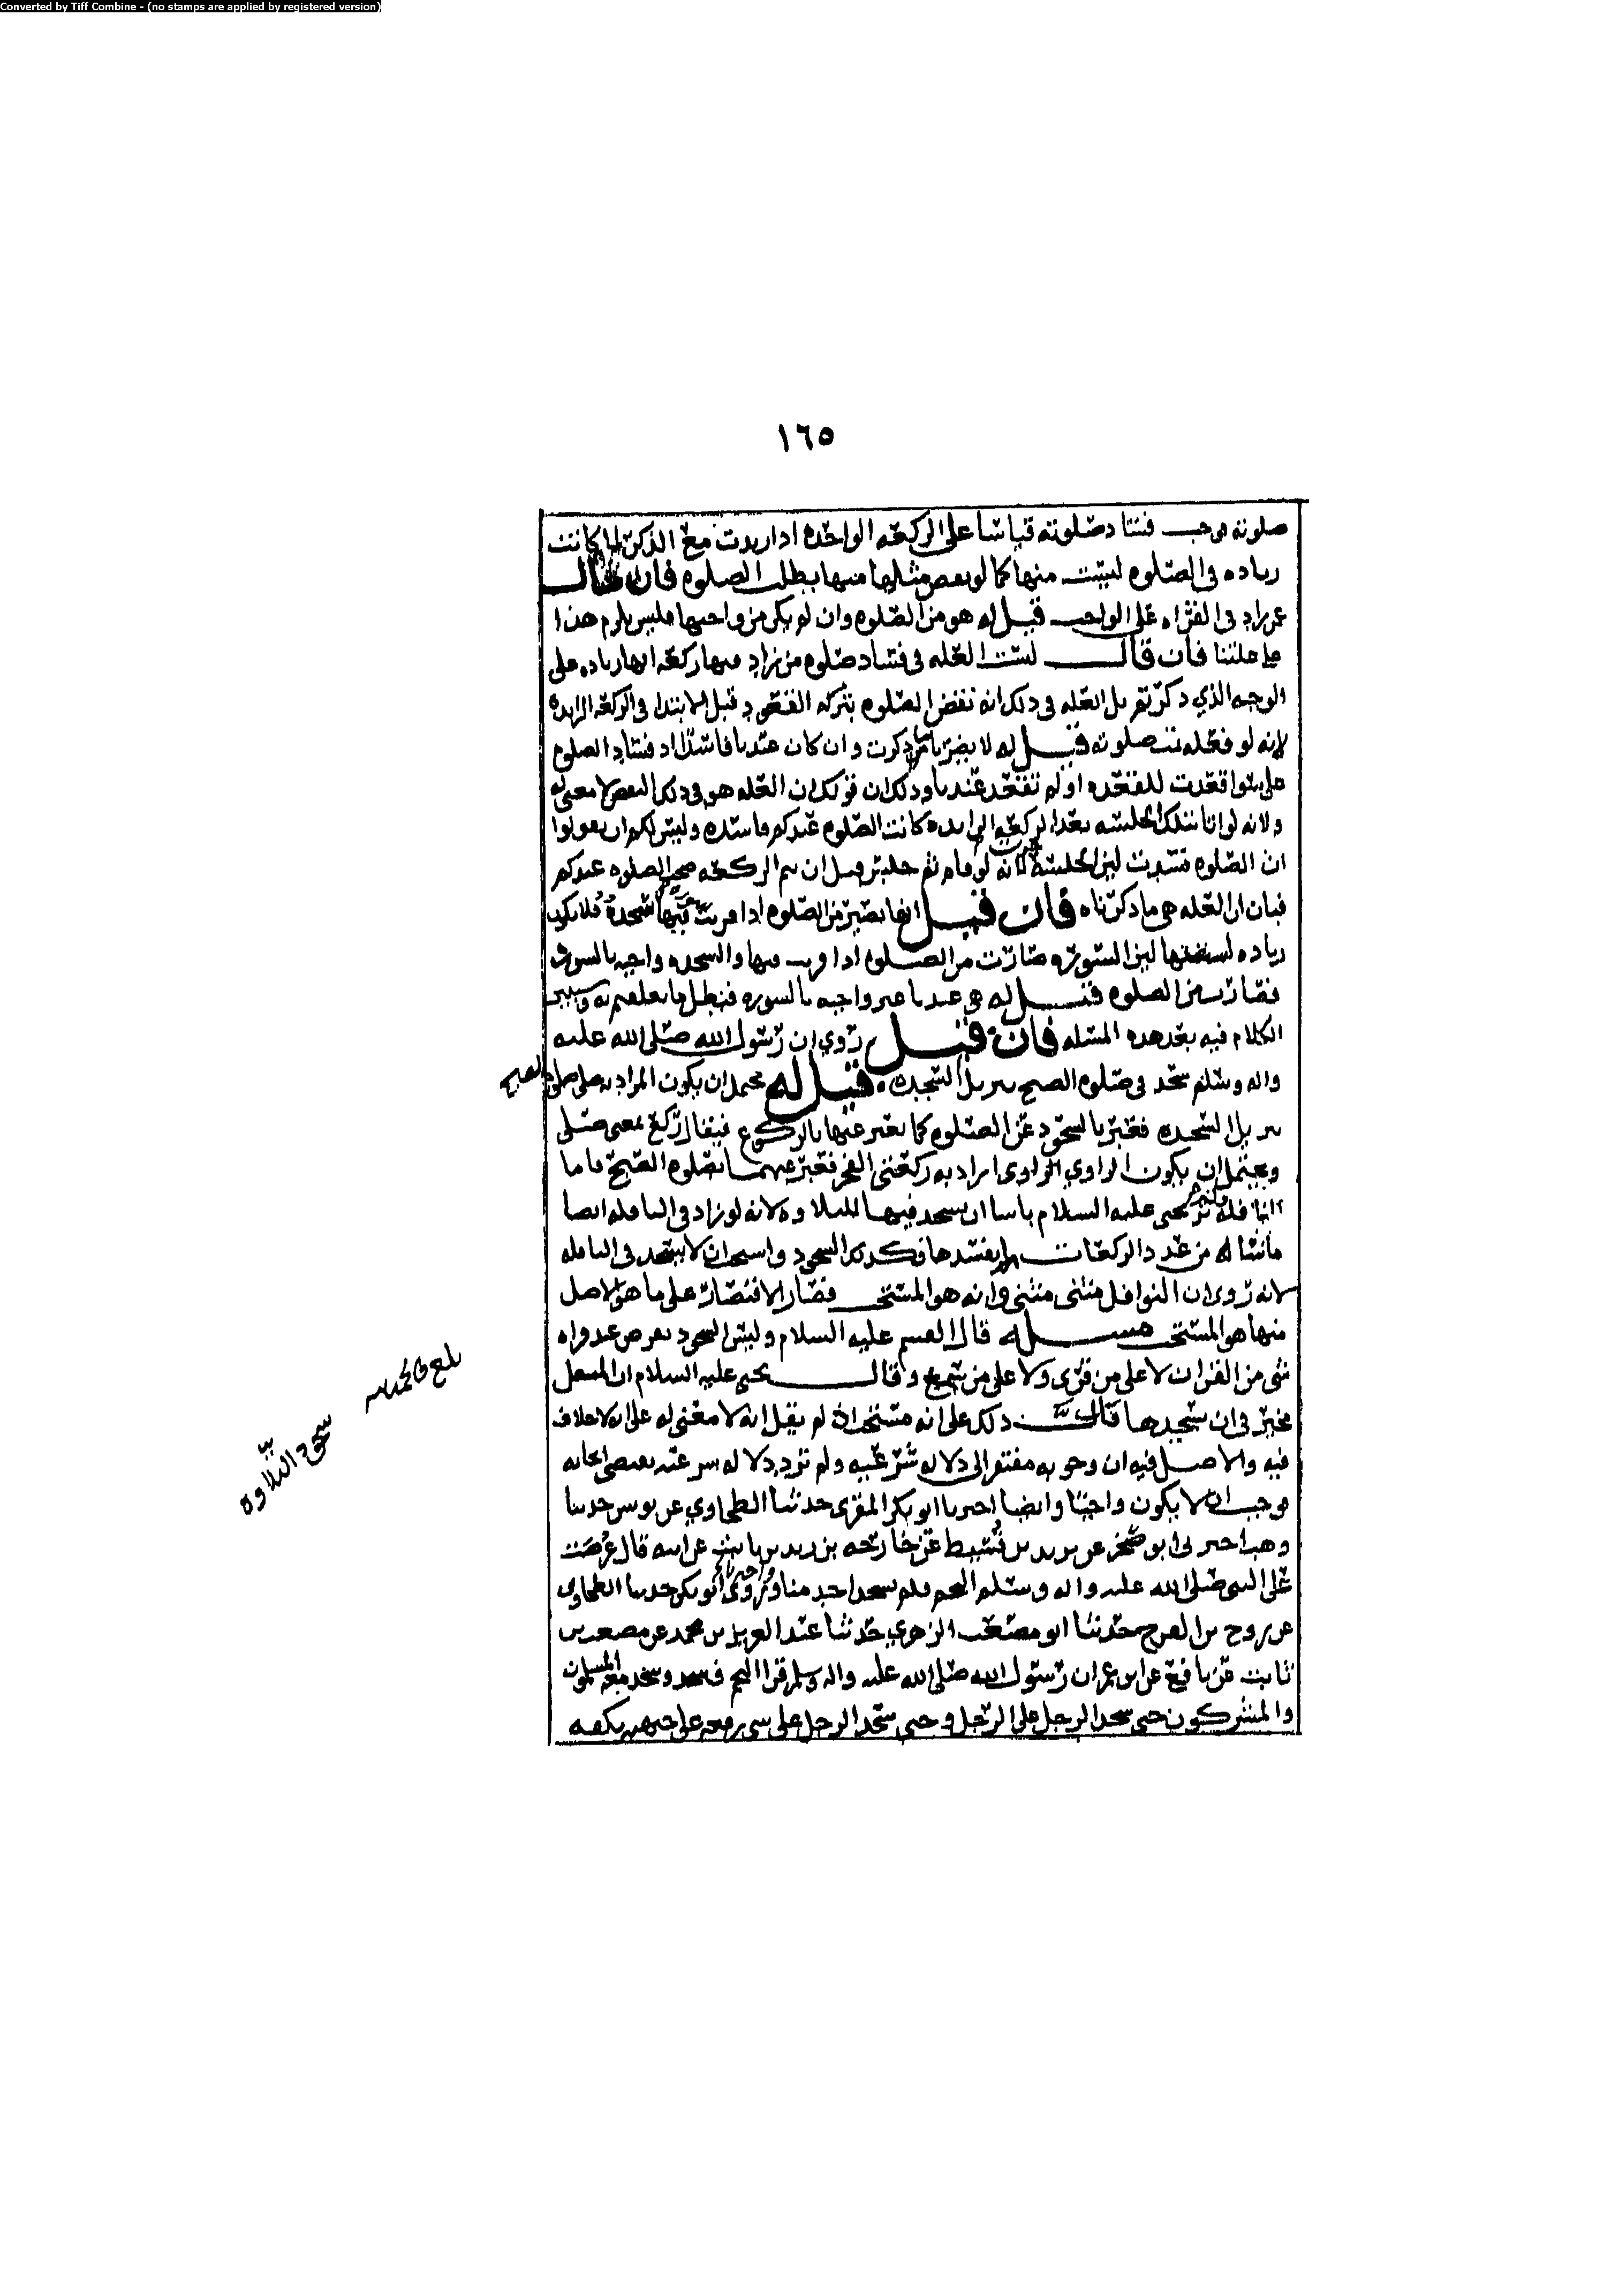 Converted by Tiff Combine - (no stamps are applied by registered version)
١٦٥
صلوته موجب فسادصلوته قياسا على الركعة الواحدة اذا زيدت مع الذكر لما كانت
زياده في الصلوه ليست منها كما لو نقص مثلها منها بطلت الصلوه فان قال
عن زاد في القراه على الواجب قيل له هو من الصلوه وان لم يكن من واجبها فليس يلزم هذا
ما عللنا فان قال ليست العله في فساد صلوه من زاد فيها ركعه انها زياده على
الوجه الذي ذكرتم بل العله في ذلك انه نقض الصلوه بتركه القعود قبل الابتدا في الركعة الزايده
لانه لو فعله تمت صلوته قيل له لا يضرنا ما ذكرت وان كان عندنا فاسدا اذ فساد الصلوه
على سوا قعدت للقعده او لم تقعد عندنا وذلك ان قولك ان العله هو في ذلك النقض لا معنى له
ولانه لو اتا بتلك الجلسه بعد الركعه الزايده كانت الصلوه عندكم فاسده وليس لكم ان تقولوا
ان الصلوه فسدت لـ الجلسه لانه لو قام ثم جلس قبل ان يتم الركعه صحت الصلوه عندكم
فبان ان العله هي ما ذكرناه فان قيل انها تصير من الصلوه اذا قريت فيها سجده فلا يكون
زياده ليست منها لـ السوره صارت من الصلوه اذا قريت فيها والسجده واجبه بالسوره
فصارت من الصلوه قيل له هي عندنا غير واجبه بالسوره فبطل ما تعلقتم به وسنبين
الكلام فيه بعد هذه المسله فان قيل روي ان رسول الله صلى الله عليه
واله وسلم سجد في صلوه الصبح بتنزيل السجده قيل له يحتمل ان يكون المراد به صلى صلوه الصبح
بتنزيل السجده فعبر بالسجود عن الصلوه كما يعبر عنها بالركوع فيقال ركع بمعنى صلى
ويحتمل ان يكون الراوي اراد به ركعتي الفجر فعبر عنهما بصلوه الصبح فاما
النافله فلم ير يحيى عليه السلام باسا ان يسجد فيها للتلاوه لانه لو زاد في النافله ايضا
ما شا له من عدد الركعات لم يفسدها فكذلك السجود واستحب ان لا يسجد في النافله
لانه روى ان النوافل مثنى مثنى وانه هو المستحب فصار الاقتصار على ما هو الاصل
منها هو المستحب مسله قال القسم عليه السلام وليس السجود بفرض عند قراه
شي من القران لا على من قرى ولا على من سمع وقال يحيى عليه السلام ان المصلي
مخير في ان يسجدها ذلك على انه مستحب اذ لم يقل انه لا معنى له على انه لا خلاف
فيه والاصل فيه ان وجوبه مفتقر الى دلاله شرعيه ولم ترد دلاله شرعيه تقتضي ايجابه
فوجب ان لا يكون واجبا وايضا اخبرنا ابو بكر المقرى حدثنا الطحاوي عن يونس حدثنا
وهب اخبرني ابو صخر عن يزيد بن قسيط عن خارجه بن زيد بن ثابت عن ابيه قال عرضت
على النبي صلى الله عليه واله وسلم النجم فلم يسجد احد منا واخبرنا ابو بكر حدثنا الطحاوي
عن روح بن الفرج حدثنا ابو مصعب الزهري حدثنا عبد العزيز بن محمد عن مصعب بن
ثابت عن نافع عن ابن عمر ان رسول الله صلى الله عليه واله وسلم قرا النجم فسجد وسجد معه المسلمون
والمشركون حتى سجد الرجل على الرجل وحتى سجد الرجل على شي رفعه على جبهته بكفه
بلغ
سجود التلاوه